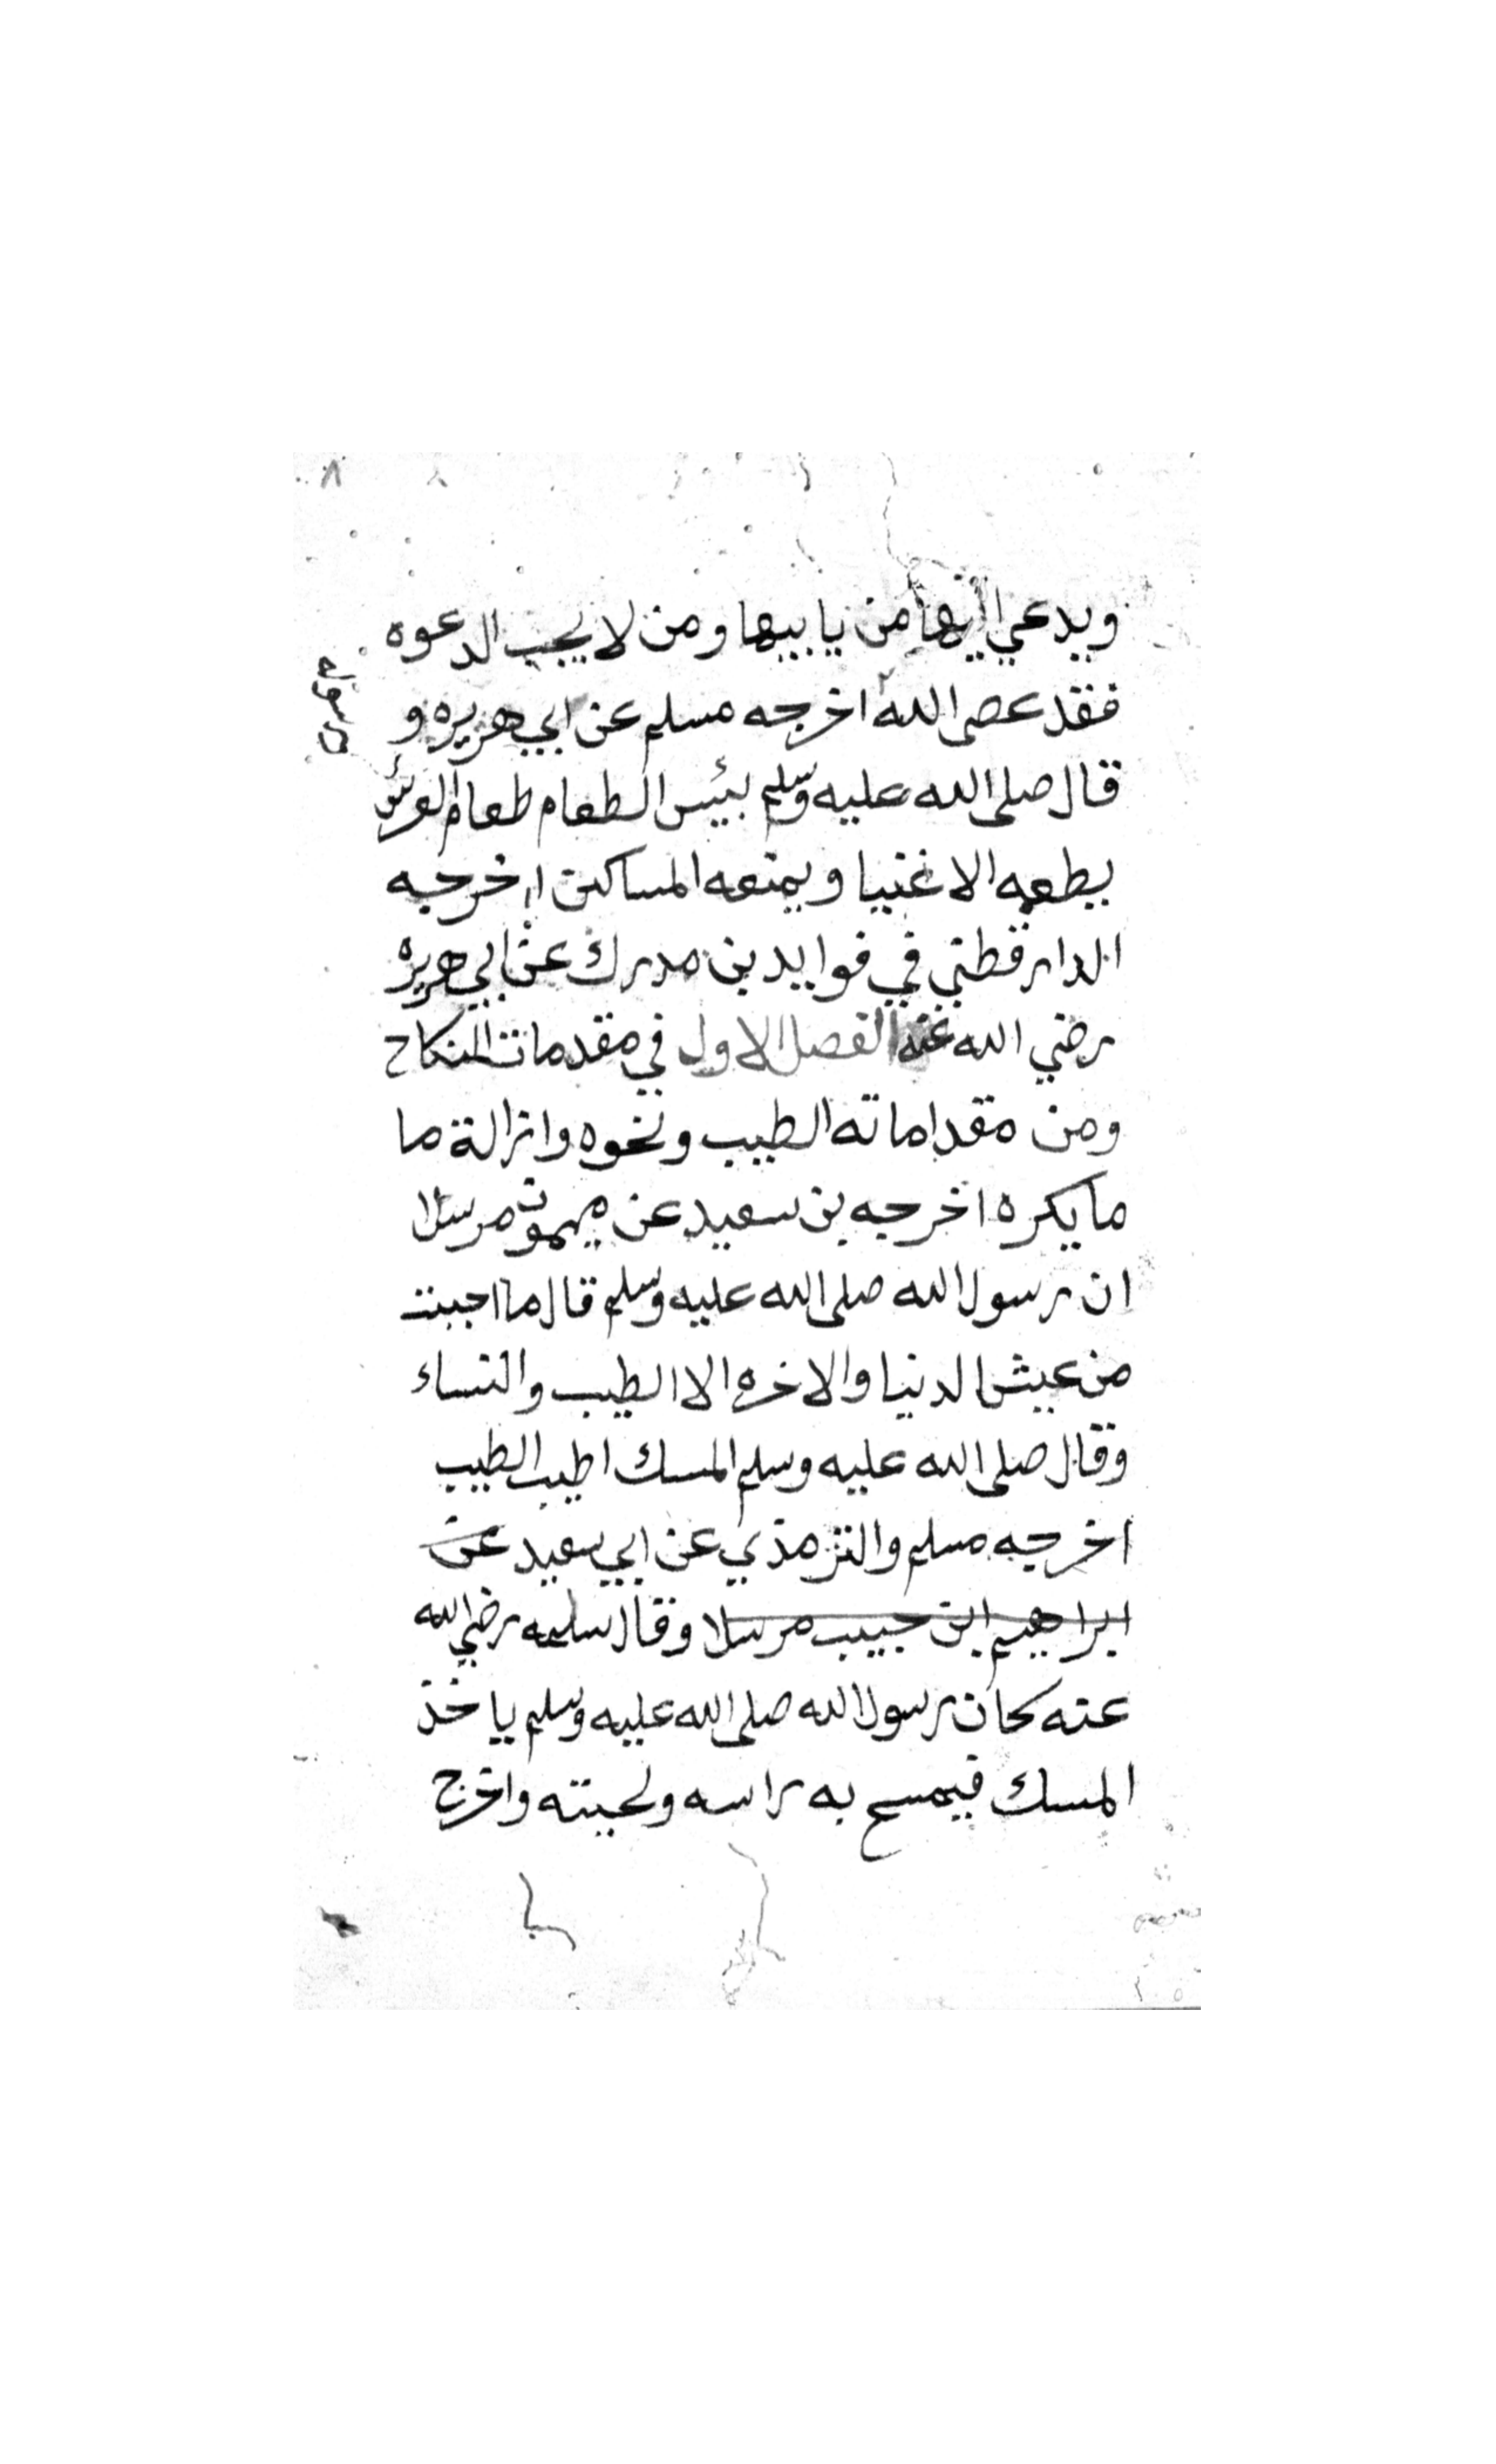 ٨
ويدعي اليها من يابيها ومن لا يجب الدعوه
فقد عصى الله اخرجه مسلم عن ابي هريره و
قال صلى الله عليه وسلم بئيس الطعام طعام العرس
يطعمه الاغنيا ويمنعه المساكين اخرجه
الدارقطني في فوايد بن مدرك عن ابي هريره
رضي الله عنه الفصل الاول في مقدمات النكاح
ومن مقداماته الطيب ونحوه وازالة ما
ما يكره اخرجه بن سعيد عن ميموت مرسلا
ان رسول الله صلى الله عليه وسلم قال ما احببت
من عيش الدنيا والاخره الا الطيب والنساء
وقال صلى الله عليه وسلم المسك اطيب الطيب
اخرجه مسلم والترمذي عن ابي سعيد عن
ابراهيم ابن حبيب مرسلا وقال سلمه رضي الله
عنه كان رسول الله صلى الله عليه وسلم ياخذ
المسك فيمسح به راسه ولحيته واخرج